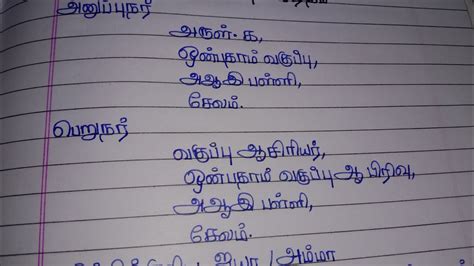 அனுப்புநர்
அருள். க,
ஒன்பதாம் வகுப்பு,
அஆஇ பள்ளி,
சேலம்.
பெறுநர்
வகுப்பு ஆசிரியர்,
ஒன்பதாம் வகுப்பு ஆ பிரிவு,
அஆஇ பள்ளி,
சேலம்.
ஐயா / அம்மா